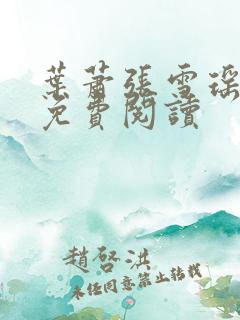 葉蕭張雪瑶
免費閱讀
趙啓洪
未任同意禁止轉載